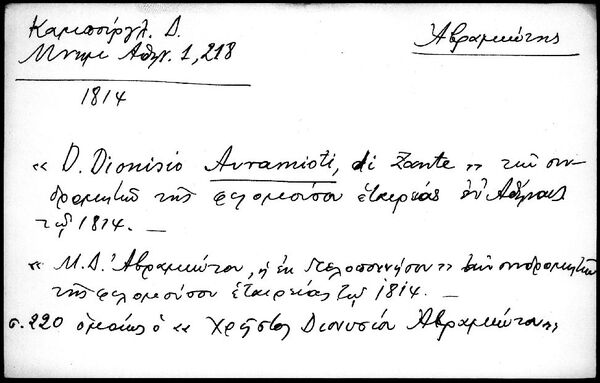 Καμπούρογλ. Δ.
Μνημ. Αθην. 1, 218
Ἀβραμιώτης
1814
« D. Dionisio Avramioti, di Zante » τῶν συν-
δρομητῶν τῆς φιλομούσου ἑταιρείας ἐν Ἀθήναις
τῷ 1814. —
« Μ. Δ. Ἀβραμιώτου, ἡ ἐκ Πελοποννήσου » τῶν συνδρομητῶν
τῆς φιλομούσου ἑταιρείας τῷ 1814. —
σ. 220 ὁμοίως ὁ « Χρῆστος Διονυσίου Ἀβραμιώτου »